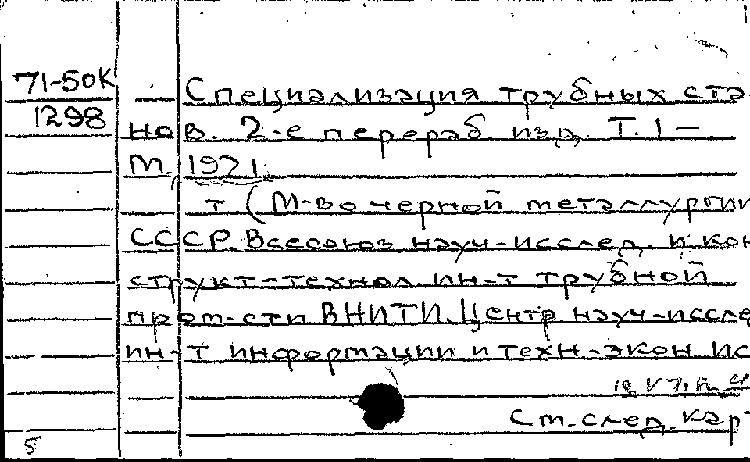 71-50К Специализация трубных ста
1298 нов. 2-е перераб изд. Т. 1 –
М, 1971.
т (М-во черной металлургии
СССР. Всесоюз науч-исслед. и кон
структ-технол ин-т трубной
пром-сти ВНИТИ. Центр науч-иссле
ин-т информации и техн-экон ис
Ст. след. кар
5